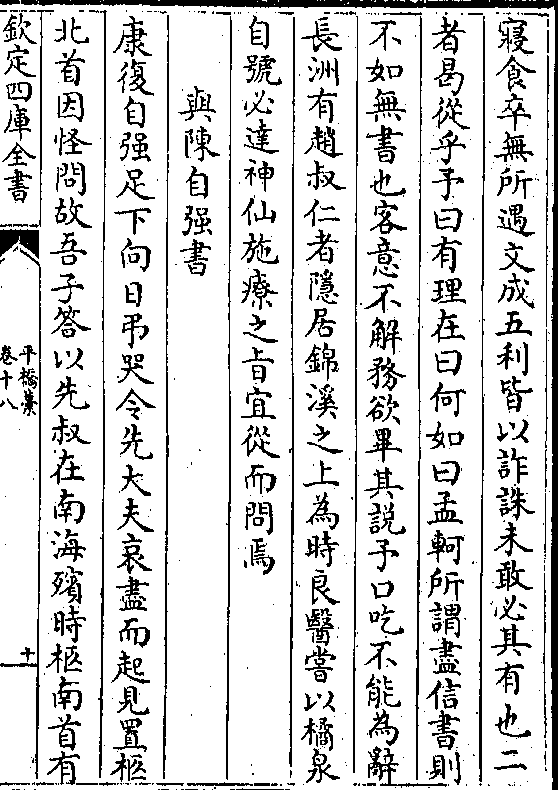 寢食卒無所遇文成五利皆以詐誅未敢必其有也二
者曷從乎予曰有理在曰何如曰孟軻所謂盡信書則
不如無書也客意不解務欲畢其說予口吃不能為辭
長洲有趙叔仁者隱居錦溪之上為時良醫嘗以橘泉
自號必達神仙施療之旨宜從而問焉
與陳自强書
康復自强足下向日弔哭令先大夫哀盡而起見置柩
北首因怪問故吾子答以先叔在南海殯時柩南首有
欽定四庫全書
平橋藁
卷十八
十